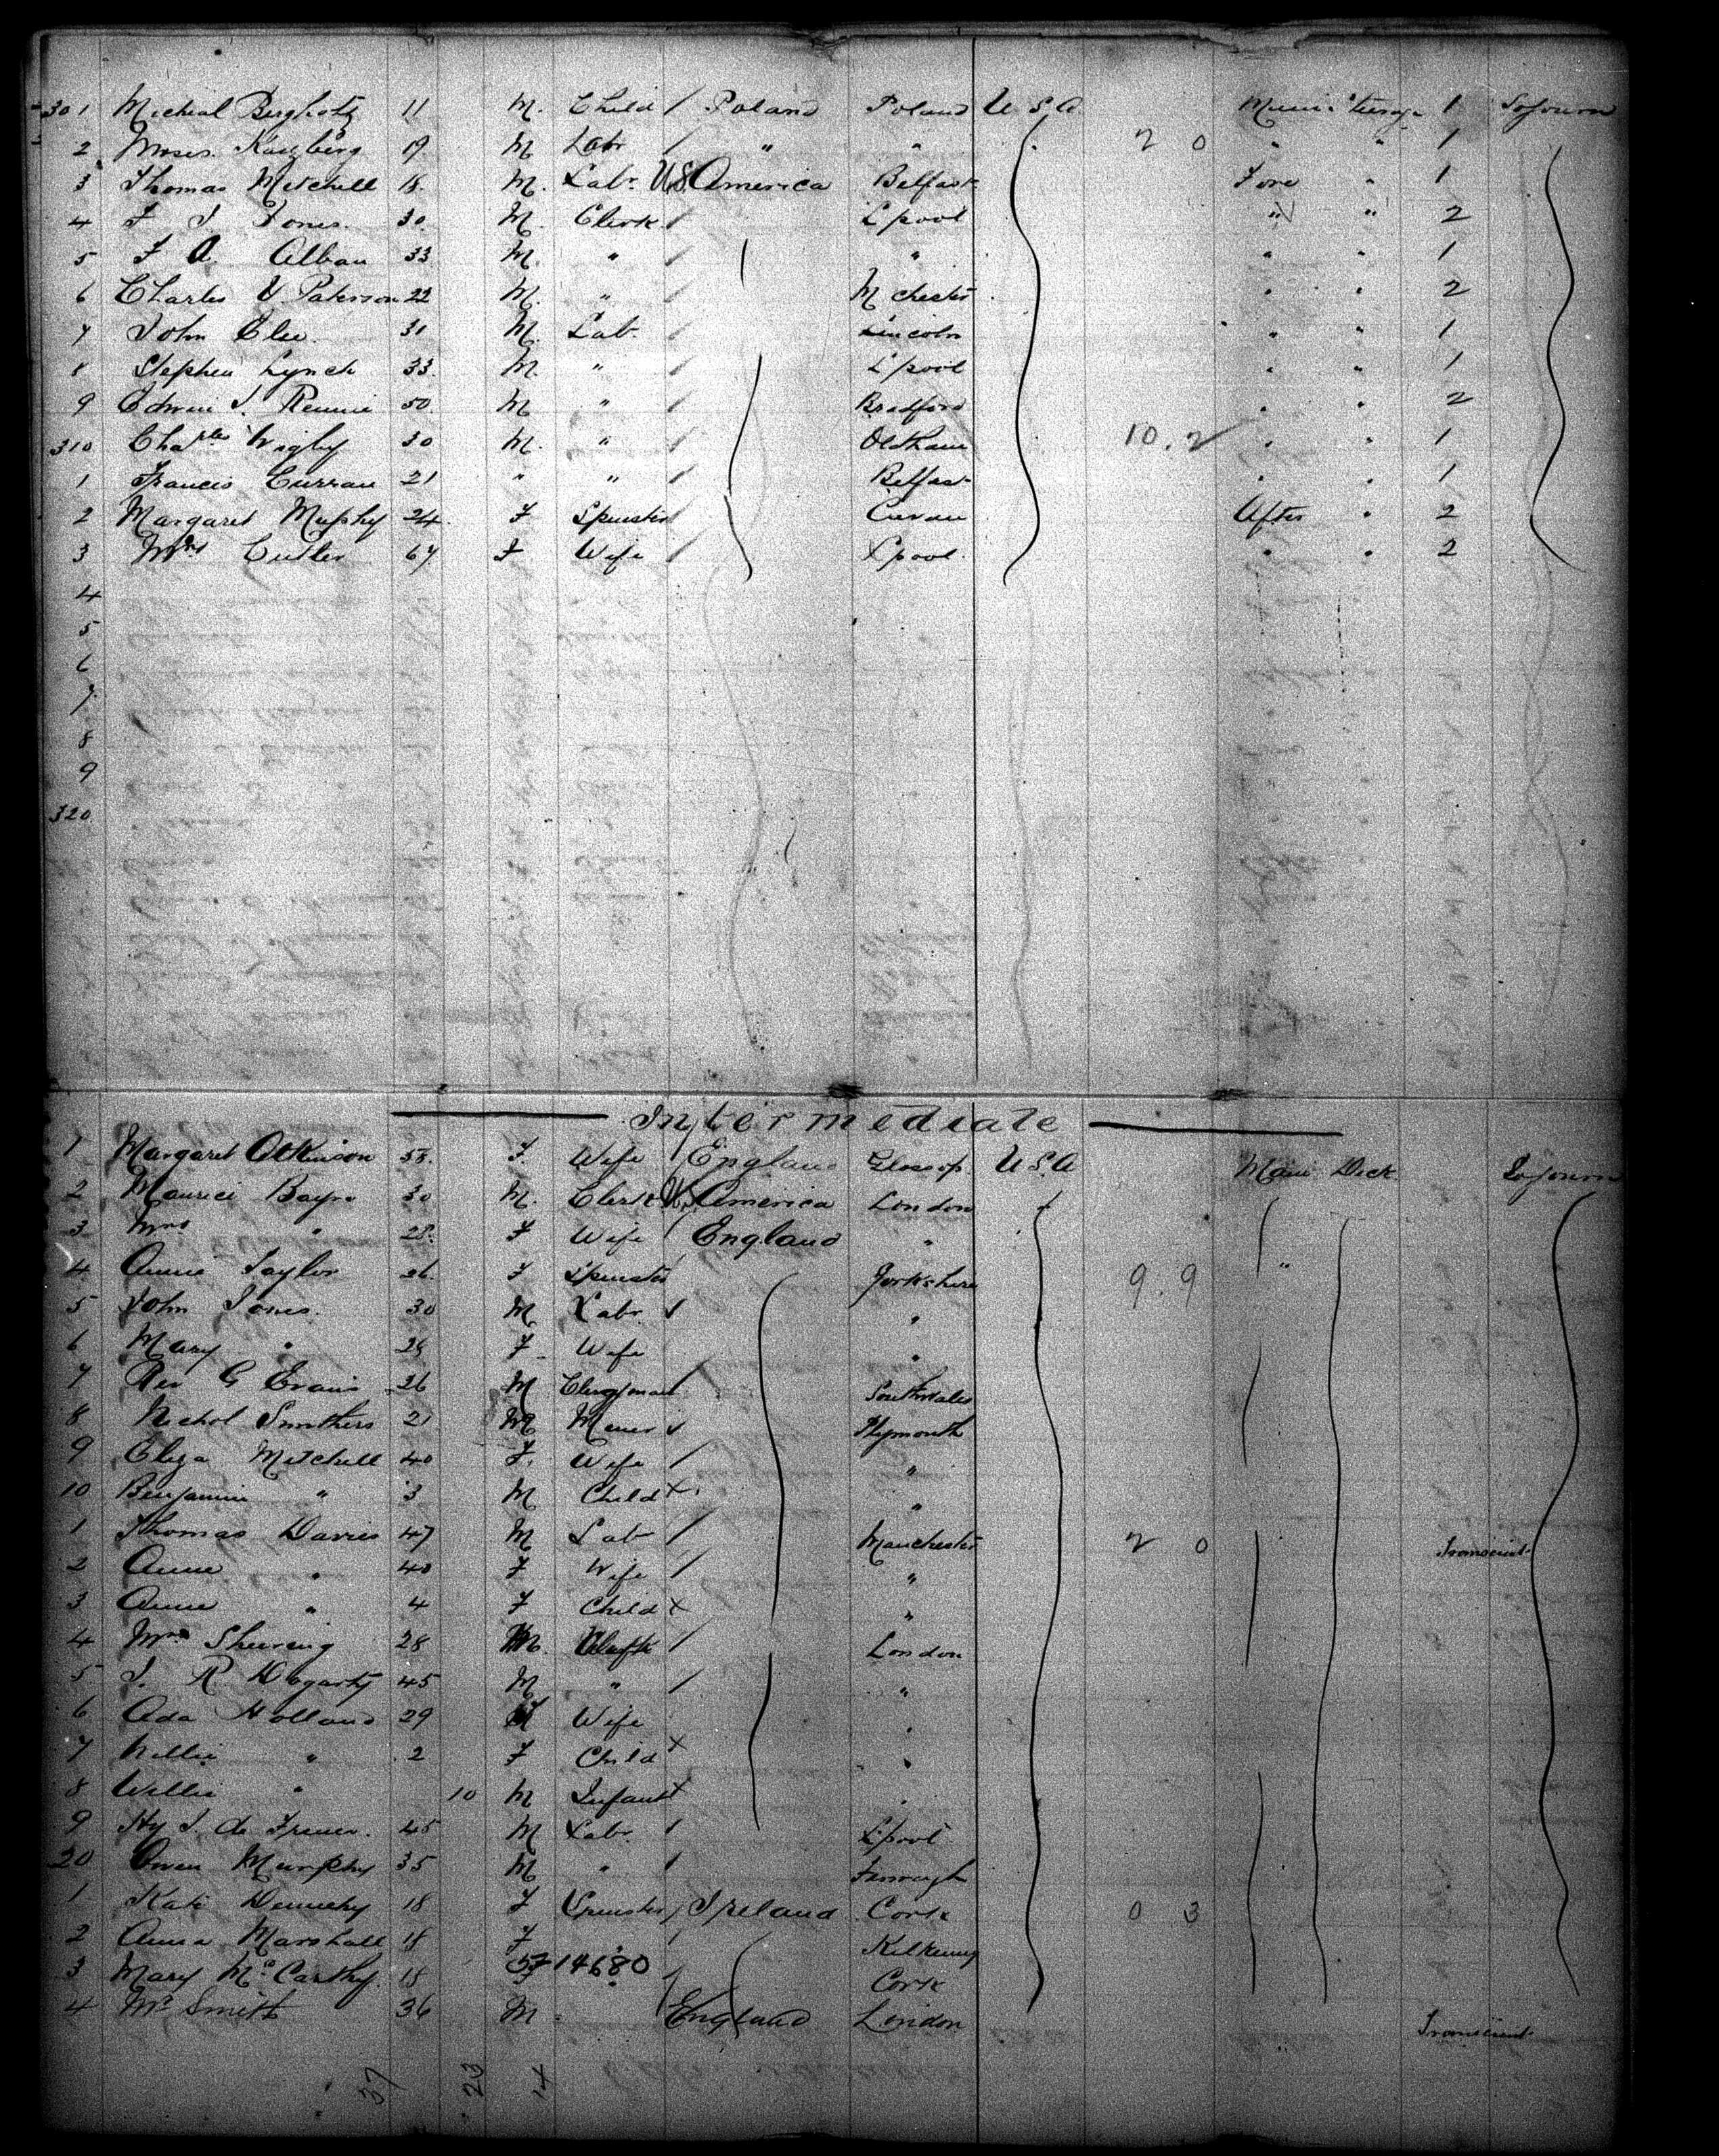 301 Micheal 11 M. Child / Poland Poland U S A Sojourn
2 Moses 19 M Labr / " " 2 0 " " 1
3 Thomas Mitchell 18 M. Labr U.S. America Belfast Fore " 1
4 F J Jones 30 M. Clerk / L'pool " " 2
5 F A. Alban 33 M. " / " " " 1
6 Charles V. Paterson 22 M. " / M chester " " 2
7 John Clee 31 M. Lab. / Lincoln " " 1
8 Stephen Lynch 33 M. " / L'pool " " 1
9 Edwin J. Rennie 50 M " / Bradford " " 2
310 Charles Wigby 30 M. " / Oldham 10.2 " " 1
1 Francis Curran 21 " " / Belfast " " 1
2 Margaret Muphy 24 F Spinster / Cavan After " 2
3 Mrs Cutler 67 F Wife / L'pool " " 2
4
5
6
7
8
9
320
Intermediate
1 Margaret Atkinson 58 F. Wife / England Glossop U S A Main Deck Sojourn
2 Maurice 30 M. Clerk U.S. America London
3 Mrs " 28 F Wife / England "
4 Annie Taylor 26 F Spinster Yorkshire 9.9 "
5 John Jones 30 M Labr / "
6 Mary " 28 F Wife "
7 Rev G Evans 26 M Clergyman / South Wales
8 Nichol Smithers 21 M Miner / Plymouth
9 Eliza Mitchell 40 F. Wife / "
10 Benjamin " 3 M Child x "
1 Thomas Davies 47 M Lab / Manchester 2 0 Transcient
2 Anne " 40 F Wife / "
3 Annie " 4 F Child x "
4 Mrs 28 M. Clerk / London
5 J. R. Hogarty 45 M " / "
6 Ada Holland 29 Wife "
7 Nellie " 2 F Child x "
8 Willie " 10 M Infant x "
9 Hy J. de 45 M Labr / L'pool
20 Owen Murphy 35 M " /
1 Kate Dennehy 18 F Spinster / Ireland Cork 0 3
2 Anna Marshall 18 F " / Kilkenny
3 Mary McCarthy 18 5714680 / Cork
4 Mr Smith 36 M England London Transcient
37 23 14